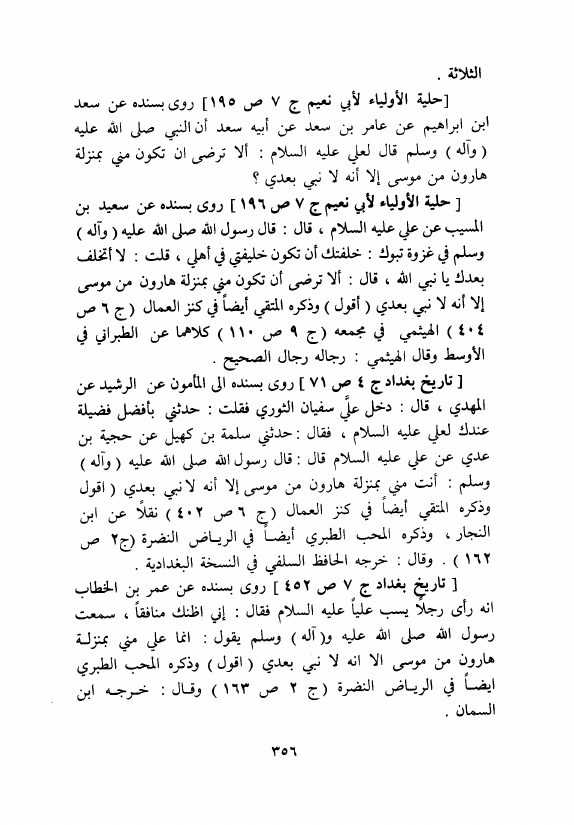 الثلاثة .
[حلية الأولياء لأبي نعيم ج ٧ ص ١٩٥] روى بسنده عن سعد
ابن ابراهيم عن عامر بن سعد عن أبيه سعد أن النبي صلى الله عليه
(وآله) وسلم قال لعلي عليه السلام : ألا ترضى ان تكون مني بمنزلة
هارون من موسى إلا أنه لا نبي بعدي ؟
[ حلية الأولياء لأبي نعيم ج ٧ ص ١٩٦ ] روى بسنده عن سعيد بن
المسيب عن علي عليه السلام ، قال : قال رسول الله صلى الله عليه (وآله)
وسلم في غزوة تبوك : خلفتك أن تكون خليفتي في أهلي ، قلت : لا أتخلف
بعدك يا نبي الله ، قال : ألا ترضى أن تكون مني بمنزلة هارون من موسى
إلا أنه لا نبي بعدي (أقول) وذكره المتقي أيضاً في كنز العمال (ج ٦ ص
٤٠٤) الهيثمي في مجمعه (ج ٩ ص ١١٠) كلاهما عن الطبراني في
الأوسط وقال الهيثمي : رجاله رجال الصحيح .
[ تاريخ بغداد ج ٤ ص ٧١ ] روى بسنده الى المأمون عن الرشيد عن
المهدي ، قال : دخل عليَّ سفيان الثوري فقلت : حدثني بأفضل فضيلة
عندك لعلي عليه السلام ، فقال : حدثني سلمة بن كهيل عن حجية بن
عدي عن علي عليه السلام قال : قال رسول الله صلى الله عليه (وآله)
وسلم : أنت مني بمنزلة هارون من موسى إلا أنه لا نبي بعدي (اقول
وذكره المتقي أيضاً في كنز العمال (ج ٦ ص ٤٠٢) نقلاً عن ابن
النجار ، وذكره المحب الطبري أيضاً في الرياض النضرة (ج٢ ص
١٦٢) . وقال : خرجه الحافظ السلفي في النسخة البغدادية .
[ تاريخ بغداد ج ٧ ص ٤٥٢ ] روى بسنده عن عمر بن الخطاب
انه رأى رجلاً يسب علياً عليه السلام فقال : إني اظنك منافقاً ، سمعت
رسول الله صلى الله عليه و(آله) وسلم يقول : انما علي مني بمنزلة
هارون من موسى الا انه لا نبي بعدي (اقول) وذكره المحب الطبري
ايضاً في الرياض النضرة (ج ٢ ص ١٦٣) وقال : خرجه ابن
السمان .
٣٥٦